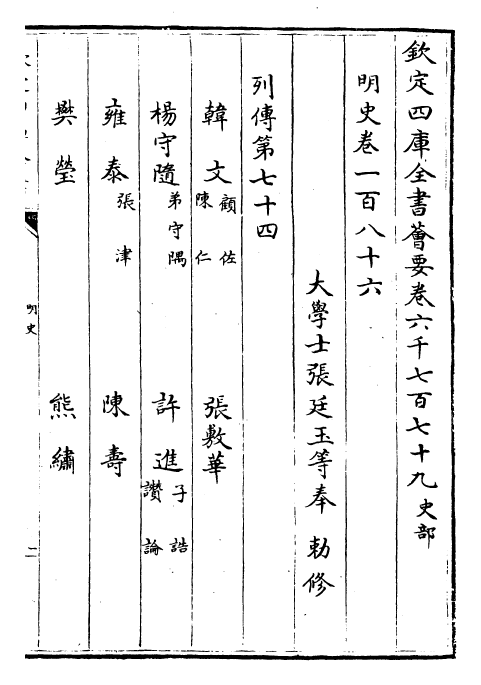 欽定四庫全書薈要卷六千七百七十九 史部
明史卷一百八十六
大學士張廷玉等奉 勅修
列傳第七十四
韓 文 顧佐 陳仁 張敷華
楊守隨 弟守隅 許 進 子誥 讚 論
雍 泰 張津 陳 壽
樊 瑩 熊 繡
明史
二